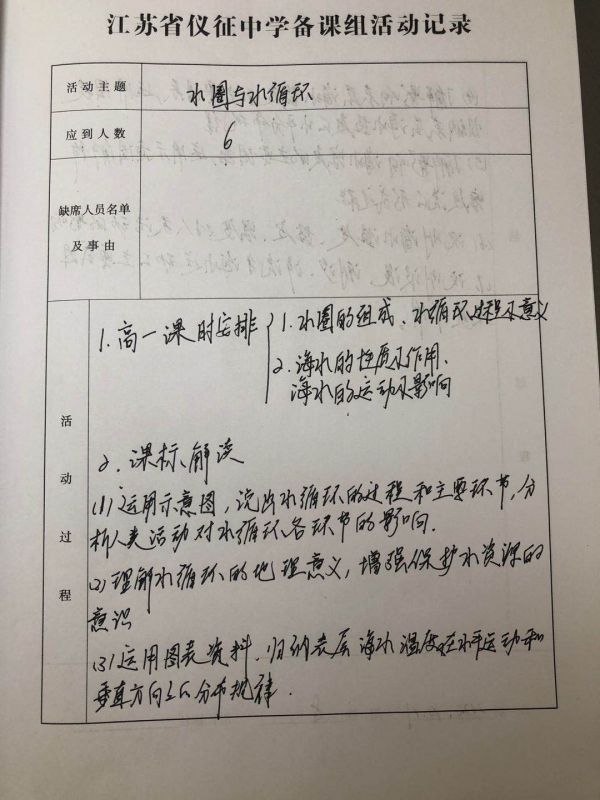 江苏省仪征中学备课组活动记录
活动主题
水圈与水循环
应到人数
6
缺席人员名单
及事由
活动过程
1.高一课时安排
1.水圈的组成、水循环过程及意义
2.海水的性质及作用、
海水的运动及影响
2.课标解读
(1)运用示意图,说出水循环的过程和主要环节,分
析人类活动对水循环各环节的影响.
(2)理解水循环的地理意义,增强保护水资源的
意识
(3)运用图表资料,归纳表层海水温度在水平运动和
垂直方向上的分布规律.